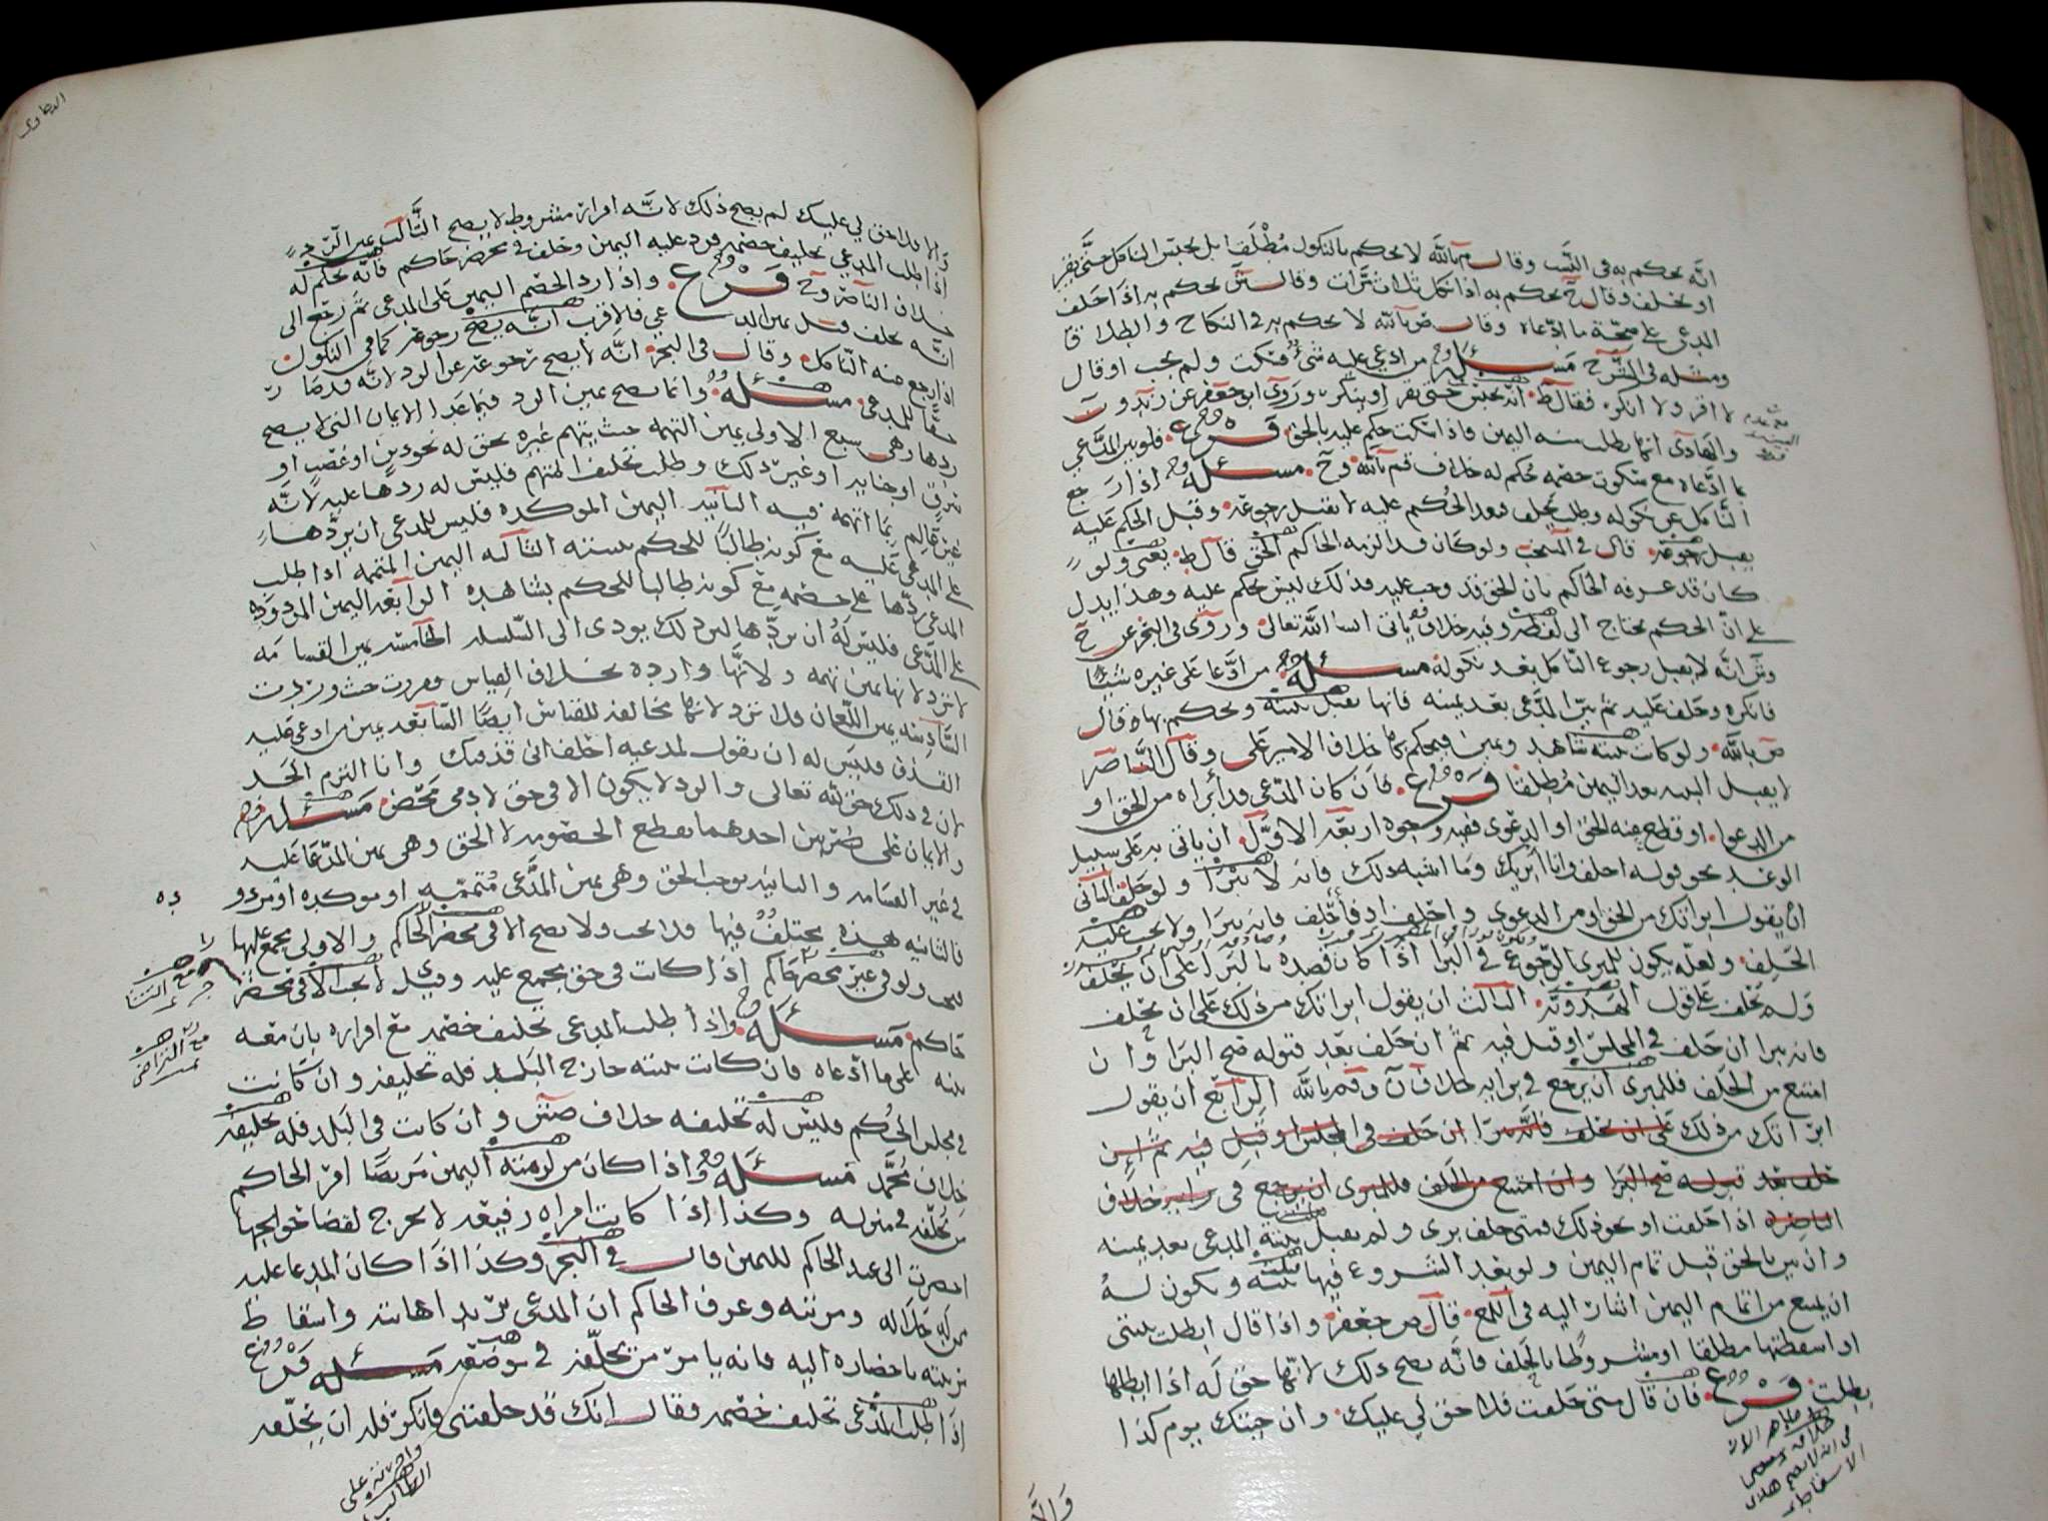 انه يحكم به في النسب وقال م بالله لا يحكم بالنكول مُطْلَقا بل يحبس الناكل حتى يقر
او يحلف وقال ح يحكم به اذا نكل ثلاث مرات وقال ش يحكم به اذا حلف
المدعي على صحة ما ادعاه وقال ض بالله لا يحكم به في النكاح والطلاق
ومثله في الشرح مسئلة من ادعي عليه شيء فسكت ولم يجب او قال
لا اقر ولا انكر فقال ط انه يحبس حتى يقر او ينكر وروى ابو جعفر عن زيد و ن
والهادي انما يطلب منه اليمين فاذا سكت حكم عليه بالحق فرع فلو بين المدعي
بما ادعاه مع سكوت خصمه حكم له خلاف م بالله وح مسئلة اذا رجع
الناكل عن نكوله وطلب يحلف فبعد الحكم عليه لا تقبل رجوعه وقبل الحكم عليه
يقبل رجوعه قال في المنتخب ولو كان قد الزمه الحاكم الحق قال ط يعني ولو
كان قد عرفه الحاكم بان الحق قد وجب عليه فذلك ليس حكم عليه وهذا يدل
على ان الحكم يحتاج الى لفظه وفيه خلاف ياتي ان شا الله تعالى وروى في البحر عن ح
وش انه لا يقبل رجوع الناكل بعد نكوله مسئلة من ادعا على غيره شيئا
فانكره وحلف عليه ثم بين المدعي بعد يمينه فانها تقبل بينته ويحكم بها قال
ض بالله ولو كانت بينته شاهد ويمين فيحكم بها خلاف الامير علي وقال الناصر
لا يقبل البينه بعد اليمين مُطلقا فرع فان كان المدعي قد أبراه من الحق او
من الدعوا او قطع عنه الحق او الدعوى ففيه وجوه اربعة الاوّل ان ياتي به على سبيل
الوعد نحو قوله احلف وانا ابريك وما اشبه ذلك فانه لا يبْرا ولو حلف الثاني
ان يقول ابراتك من الحق او من الدعوى واحلف او فأحلف فانه يبرا ولا يجب عليه
الحلف ولعله يكون للمبري الرجوع في البرا اذا كان قصده بالبرا على ان يحلف
ولم يحلف على قول الهدويه الثالث ان يقول ابراتك من ذلك على ان تحلف
فانه يبرا ان حلف في المجلس او قبل فيه ثم ان حلف بعد قبوله صح البرا وان
امتنع من الحلف فللمبري ان يرجع في برايه خلاف ن وم بالله الرابع ان يقول
ابراتك من ذلك على ان تحلف فانه يبرا ان حلف في المجلس او قبل فيه ثم ان
حلف بعد قبوله صح البرا وان امتنع من الحلف فللمبري ان يرجع في برايه خلاف
الناصر اذا حلفت او نحو ذلك فمتى حلف بري ولم يقبل بينة المدعي بعد يمينه
وان بين بالحق قبل تمام اليمين ولو بعد الشروع فيها بينته ويكون له
ان يمنع من اتمام اليمين اشار اليه في اللمع قال ص جعفر واذا قال ابطلت بينتي
او اسقطتها مطلقا او مشروطا بالحلف فانه يصح ذلك لانها حق له اذا ابطلها
بطلت فرع فان قال متى حلفت فلا حق لي عليك وان جيتك يوم كذا
والا فلا حق لي عليك لم يصح ذلك لانه اقرار مشروط لا يصح الثالث عبر الرد
اذا طلب المدعي تحليف خصمه فرد عليه اليمين وحلف في محضر حاكم فانه يحكم له
خلاف الناصر وح فرع واذا رد الخصم اليمين على المدعي ثم رجع الى
انه يحلف قبل يمين المدعي فالاقرب انه يصح رجوعه كما في النكول
اذا رجع منه الناكل وقال في البحر انه لا يصح رجوعه عن الرد لانه قد صار
حقا للمدعي مسئلة وانما يصح يمين الرد فيما عدا الايمان التي لا يصح
ردها وهي سبع الاولى يمين التهمه حيث يتهم غيره بحق له نحو دين او غصب او
سرق او جنايه او غير ذلك وطلب تحليف المتهم فليس له ردها عليه لانه
غير عالم بما اتهمه فيه الثانيه اليمين الموكده فليس للمدعي ان يردها
على المدعى عليه مع كونه طالبا للحكم ببينته الثالثه اليمين المتممه اذا طلب
المدعي ردها على خصمه مع كونه طالبا للحكم بشاهده الرابعه اليمين المردوده
على المدعي فليس له ان يردها لان ذلك يودي الى التسلسل الخامسه يمين القسامه
لا ترد لانها يمين تهمه ولانها وارده بخلاف القياس فقررت حيث وردت
السادسه يمين اللعان فلا ترد لانها مخالفة للقياس ايضا السابعه يمين من ادعي عليه
القذف فليس له ان يقول لمدعيه احلف اني قذفتك وانا التزم الحد
لان في ذلك حق لله تعالى والرد لا يكون الا في حق لادمي محض مسئلة
والايمان على ضربين احدهما يقطع الخصومه لا الحق وهي يمين المدعا عليه
في غير القسامه والثانيه توجب الحق وهي يمين المدعي مُتممه او موكده او مردو
ده
فالثانيه هذه يختلف فيها فلا تجب ولا تصح الا في محضر الحاكم والاولى يجمع عليها
تجب ولو في غير محضر حاكم اذا كانت في حق يجمع عليه وقيل لا تجب الا في محضر
حاكم مسئلة واذا طلب المدعي تحليف خصمه مع اقراره بان معه
بينه على ما ادعاه فان كانت بينته خارج البلد فله تحليفه وان كانت
في مجلس الحكم فليس له تحليفه خلاف ص ش وان كانت في البلد فله تحليفه
خلاف محمد مسئلة اذا كان من لزمته اليمين مريضا امر الحاكم
من يحلفه في منزله وكذا اذا كانت امراه رفيعه لا تخرج لقضا حوايجها
احضرت الى عند الحاكم لليمين قال في البحر وكذا اذا كان المدعا عليه
ممن له جلاله ومرتبه وعرف الحاكم ان المدعي يريد اهانته واسقاط
مرتبته باحضاره اليه فانه يامر من يحلفه في موضعه مسئلة فرع
اذا طلب المدعي تحليف خصمه فقال انك قد حلفتني فانكر فله ان يحلفه